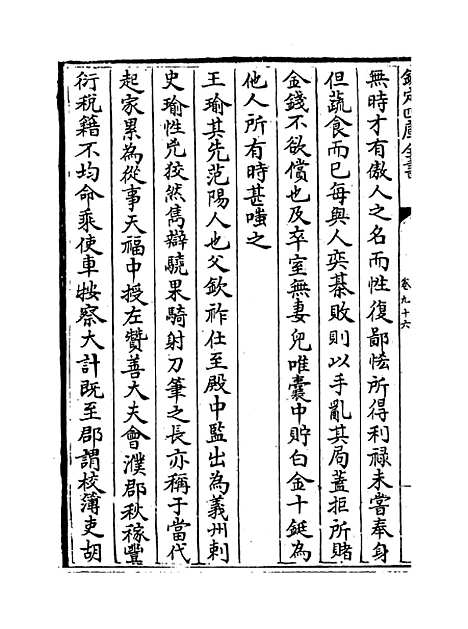 欽定四庫全書
卷九十六
無時才有傲人之名而性復鄙恡所得利祿未嘗奉身
但蔬食而已每與人奕棊敗則以手亂其局蓋拒所賭
金錢不欲償也及卒室無妻兒唯囊中貯白金十鋌為
他人所有時甚嗤之
王瑜其先范陽人也父欽祚仕至殿中監出為義州刺
史瑜性兇狡然雋辯驍果騎射刀筆之長亦稱于當代
起家累為從事天福中授左贊善大夫會濮郡秋稼豐
衍稅籍不均命乘使車按察大計既至郡謂校簿吏胡